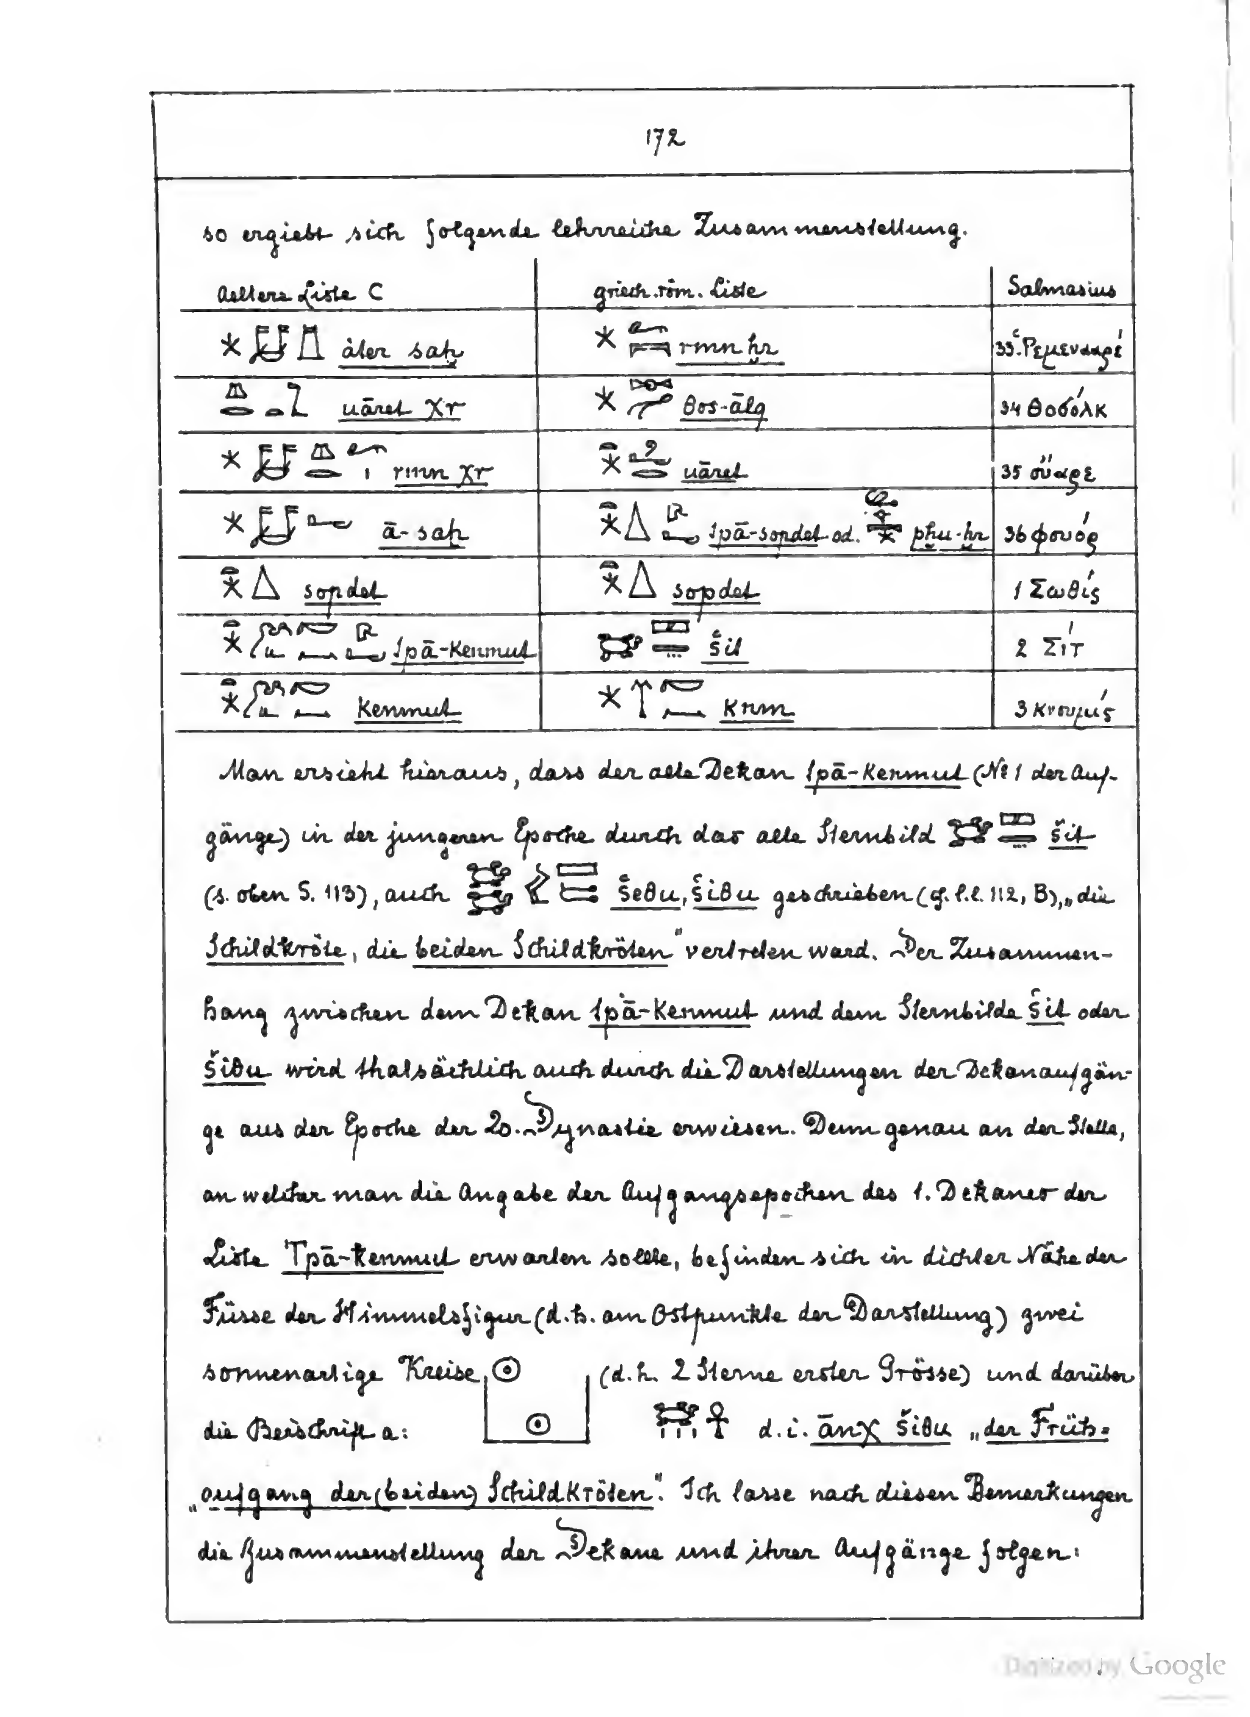 172
so ergiebt sich folgende lehrreiche Zusammenstellung.
Aeltere Liste C griech.röm. Liste Salmasius
åter saḥ rmn ḥr 33. Ρεμεναρέ
uāret χr θos-ālq 34 Θοσόλκ
rmn χr uāret 35 οὔαρε
ā-saḥ tpā-sopdet od. pḥu-ḥr 36 φουόρ
sopdet sopdet 1 Σωθίς
tpā-Kenmut šit 2 Σίτ
Kenmut Knm 3 Κνουμίς
Man ersieht hieraus, dass der alte Dekan tpā-Kenmut (No 1 der Auf-
gänge) in der jungeren Epoche durch das alte Sternbild šit
(s. oben S. 113), auch šeθu, šiθu geschrieben (cf. l.l. 112, B), „die
Schildkröte, die beiden Schildkröten" vertreten ward. Der Zusammen-
hang zwischen dem Dekan tpā-Kenmut und dem Sternbilde šit oder
šiθu wird thatsächlich auch durch die Darstellungen der Dekanaufgän-
ge aus der Epoche der 20. Dynastie erwiesen. Denn genau an der Stelle,
an welcher man die Angabe der Aufgangsepochen des 1. Dekanes der
Liste Tpā-Kenmut erwarten sollte, befinden sich in dichter Nähe der
Füsse der Himmelsfigur (d.h. am Ostpunkte der Darstellung) zwei
sonnenartige Kreise (d.h. 2 Sterne erster Grösse) und darüber
die Beischrift a: d.i. ānχ šiθu „der Früh=
„aufgang der (beiden) Schildkröten". Ich lasse nach diesen Bemerkungen
die Zusammenstellung der Dekane und ihrer Aufgänge folgen:
Digitized by Google